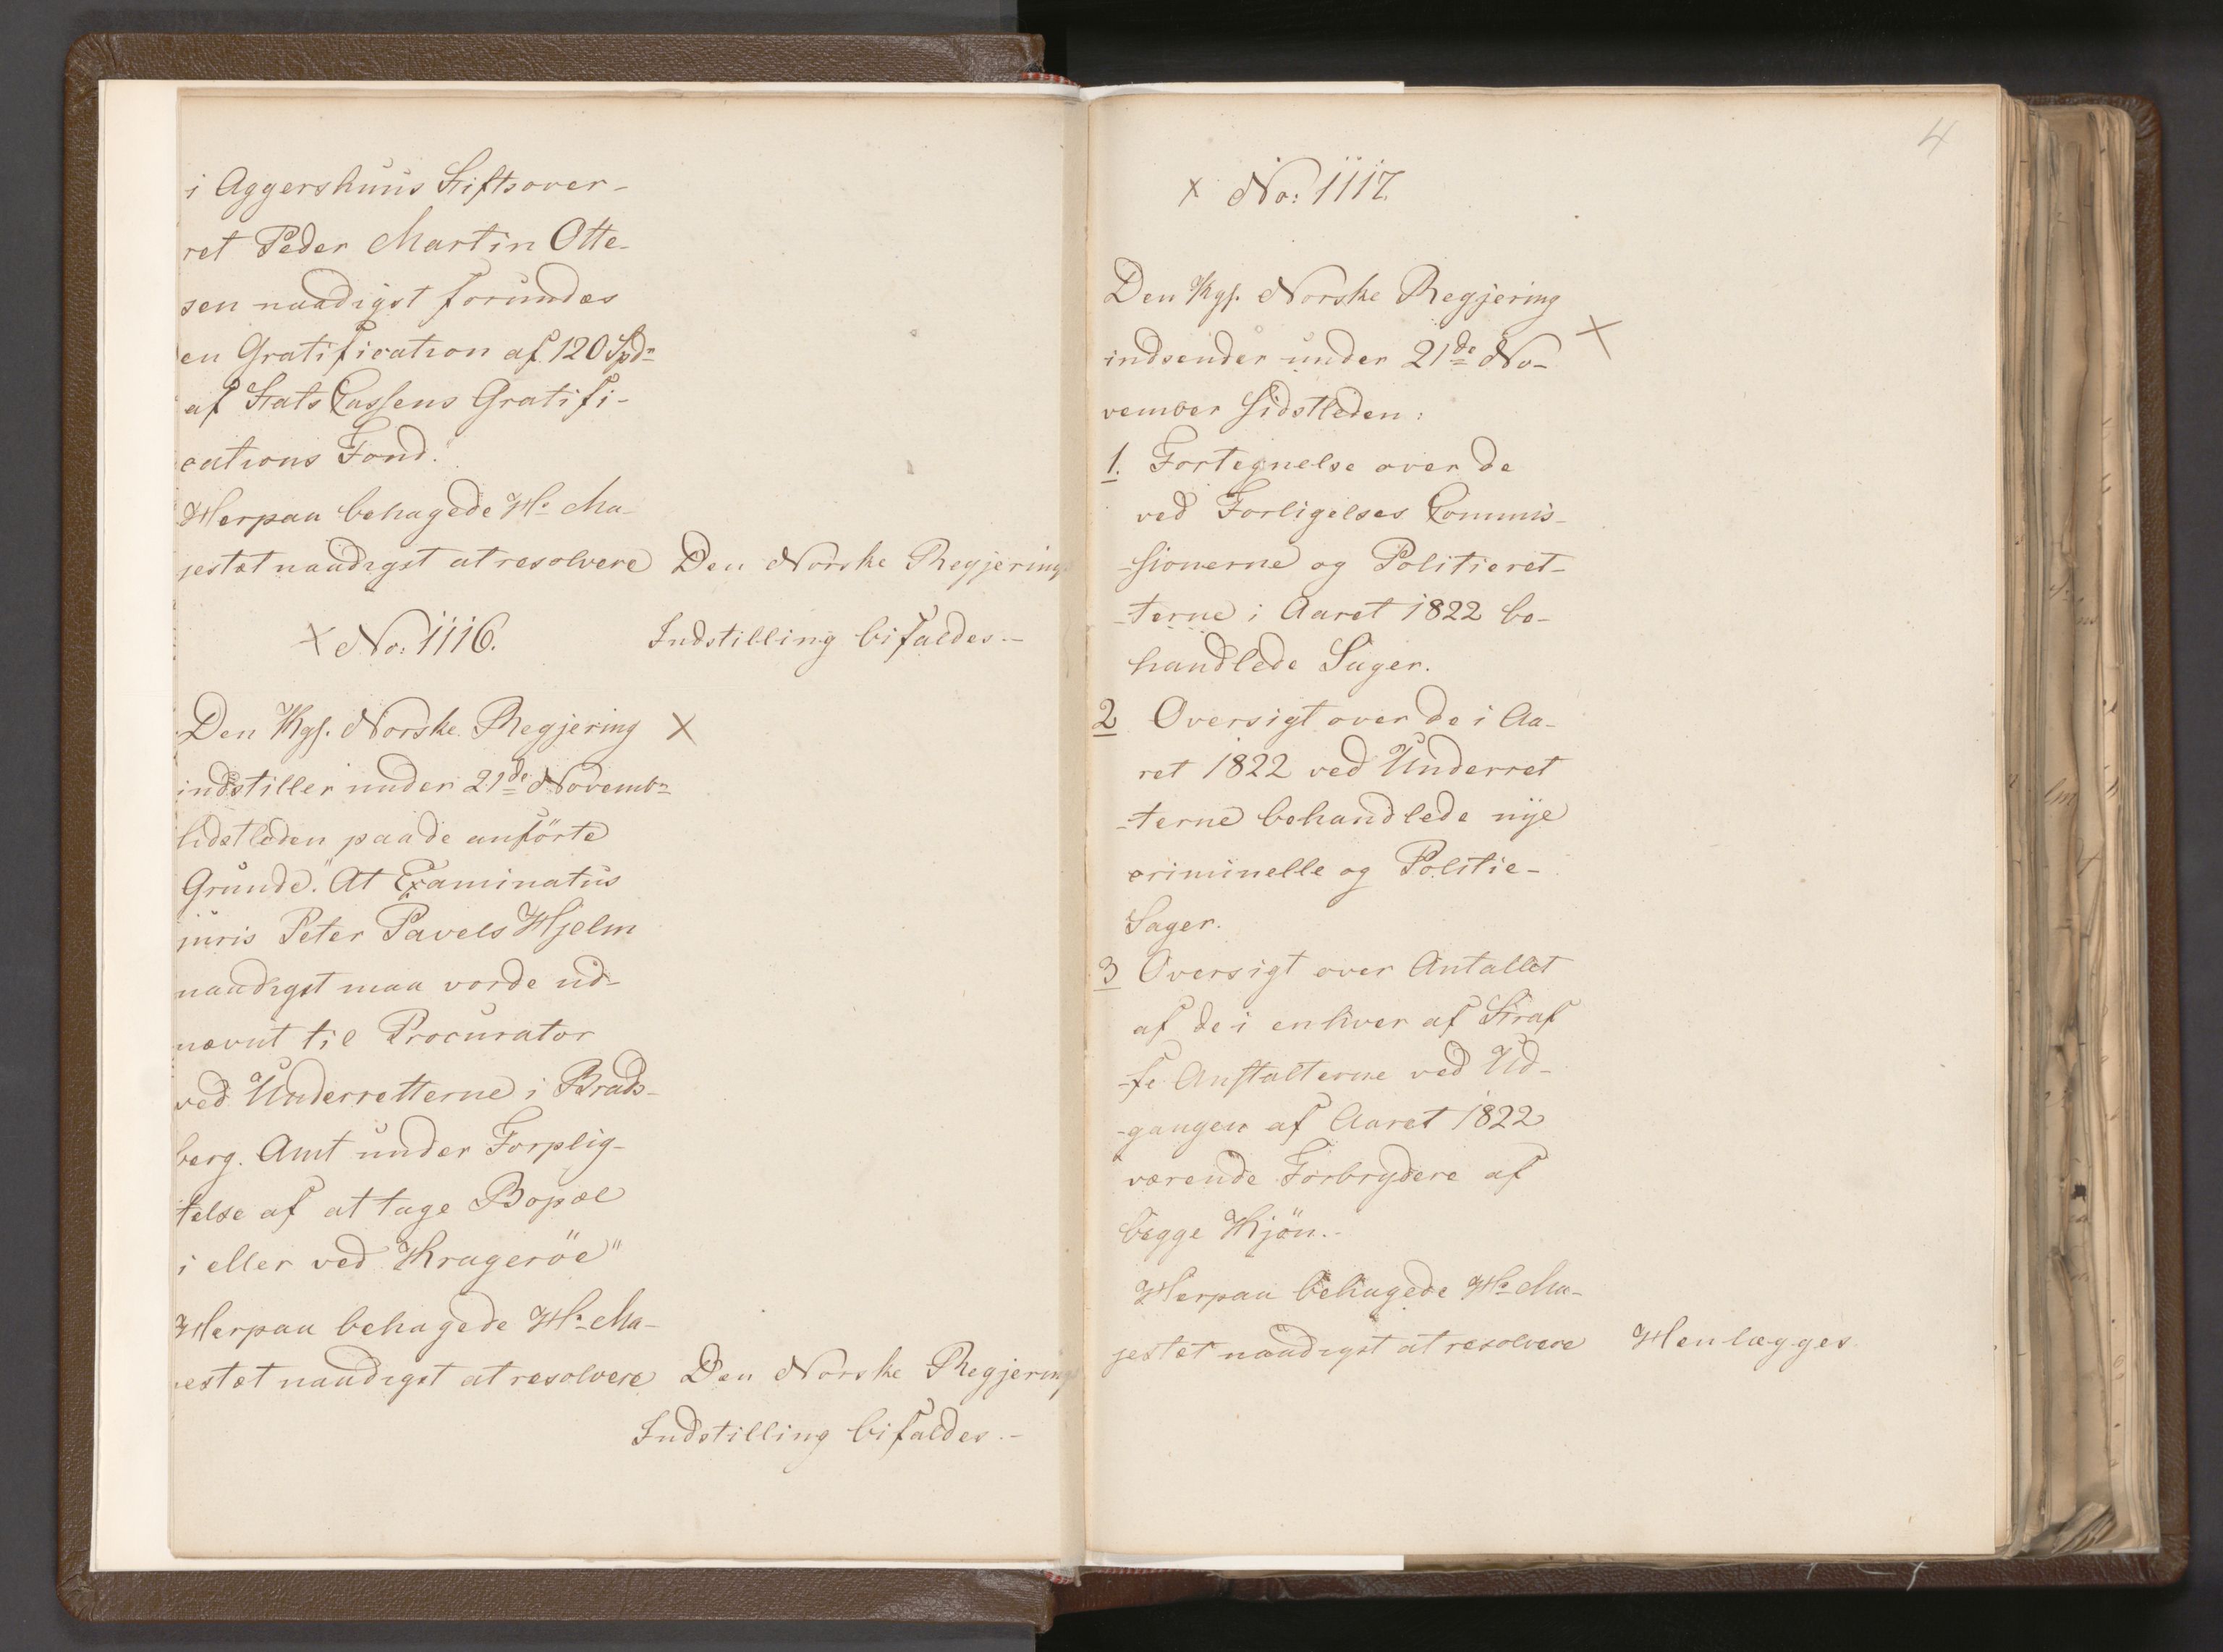 i Aggershuus Stiftsover-
ret Peder Martin Otte-
sen naadigst forundes
en Gratification af 120 Spdr
af Stats Cassens Gratifi-
cations Fond."
Herpaa behagede Hs Ma-
jestæt naadigst at resolvere Den Norske Regjerings
Indstilling bifaldes.-
× No: 1116.
Den Kgs. Norske Regjering ×
indstiller under 21de Novembr
sidstleden paa de anförte
Grunde: "At Examinatus
juris Peter Pavels Hjelm
naadigst maa vorde ud-
nævnt til Procurator
ved Underretterne i Brads-
berg. Amt under Forplig-
telse af at tage Bopæl
i eller ved Krageröe"
Herpaa behagede Hs Ma-
jestæt naadigst at resolvere Den Norske Regjerings
Indstilling bifaldes.-
4
× No: 1117.
Den Kgs. Norske Regjering
indsender under 21de No- ×
vember sidstleden:
1. Fortegnelse over de
ved Forligelses Commis-
-sionerne og Politieret-
-terne i Aaret 1822 be-
handlede Sager.
2 Oversigt over de i Aa-
ret 1822 ved Underret
-terne behandlede nye
criminelle og Politie-
Sager.
3 Oversigt over Antallet
af de i enhver af Straf
-fe Anstalterne ved Ud-
-gangen af Aaret 1822
værende Forbrydere af
begge Kjön.-
Herpaa behagede Hs Ma-
jestæt naadigst at resolvere Henlægges.